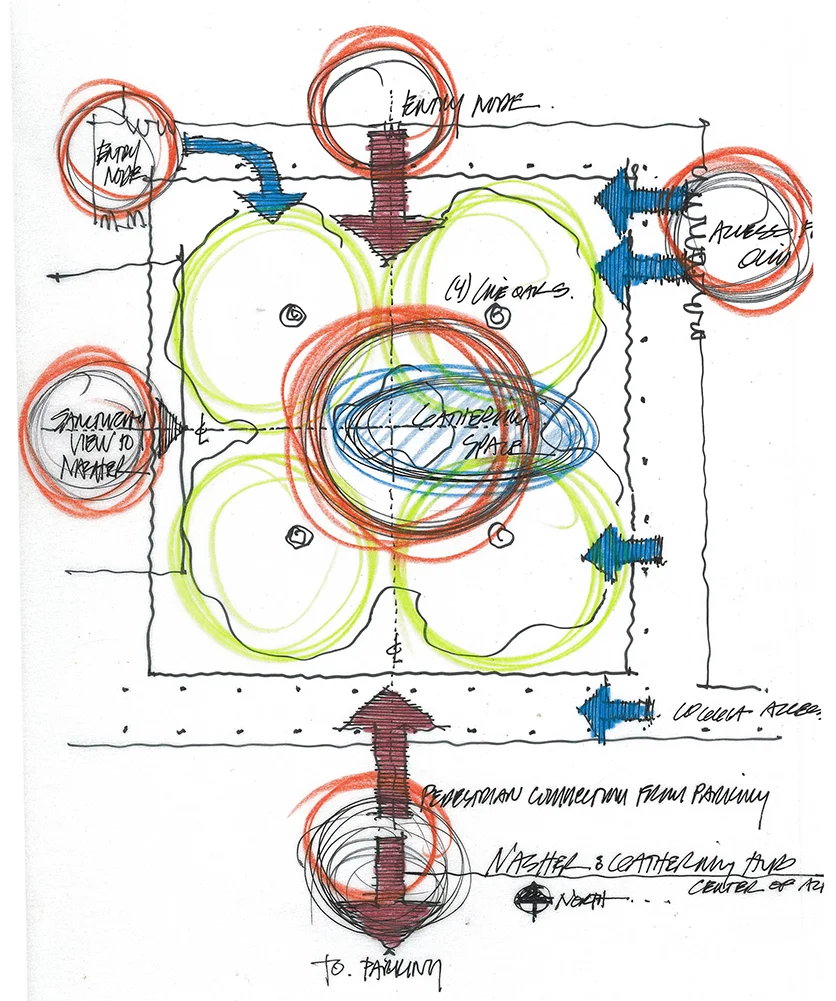 ENTRY NODE.
ENTRY
NODE.
ACCESS
(4) LIVE OAKS.
GATHERING
SPACE
SANCTUARY
VIEW TO
NASHER
ACCESS
PEDESTRIAN CONNECTION FROM PARKING
NASHER & GATHERING HUB
CENTER OF
NORTH
TO. PARKING